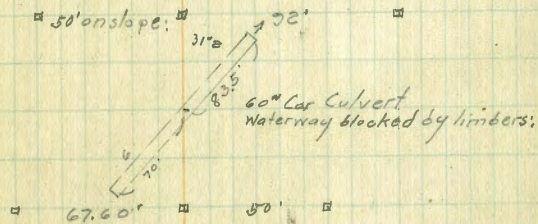 50' on slope:
92'
31°
83.5'
60" Cor Culvert
Waterway blocked by timbers:
70'
67.60'
50'